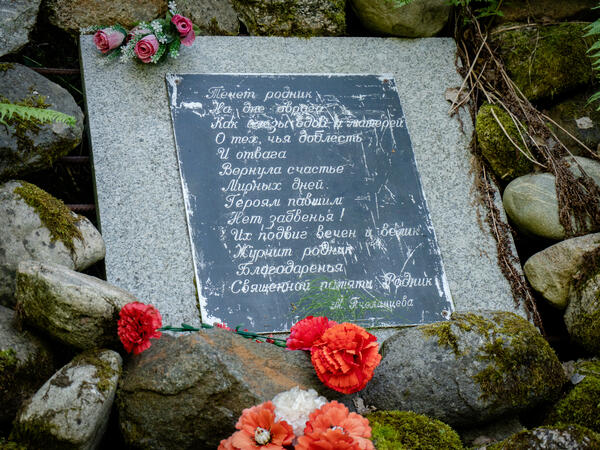 Течет родник
На дне оврага
Как слезы вдов и матерей
О тех, чья доблесть
И отвага
Вернула счастье
Мирных дней.
Героям павшим
Нет забвенья!
Их подвиг вечен и велик.
Журчит родник
Благодаренья
Священной памяти Родник
М. Пчелинцева